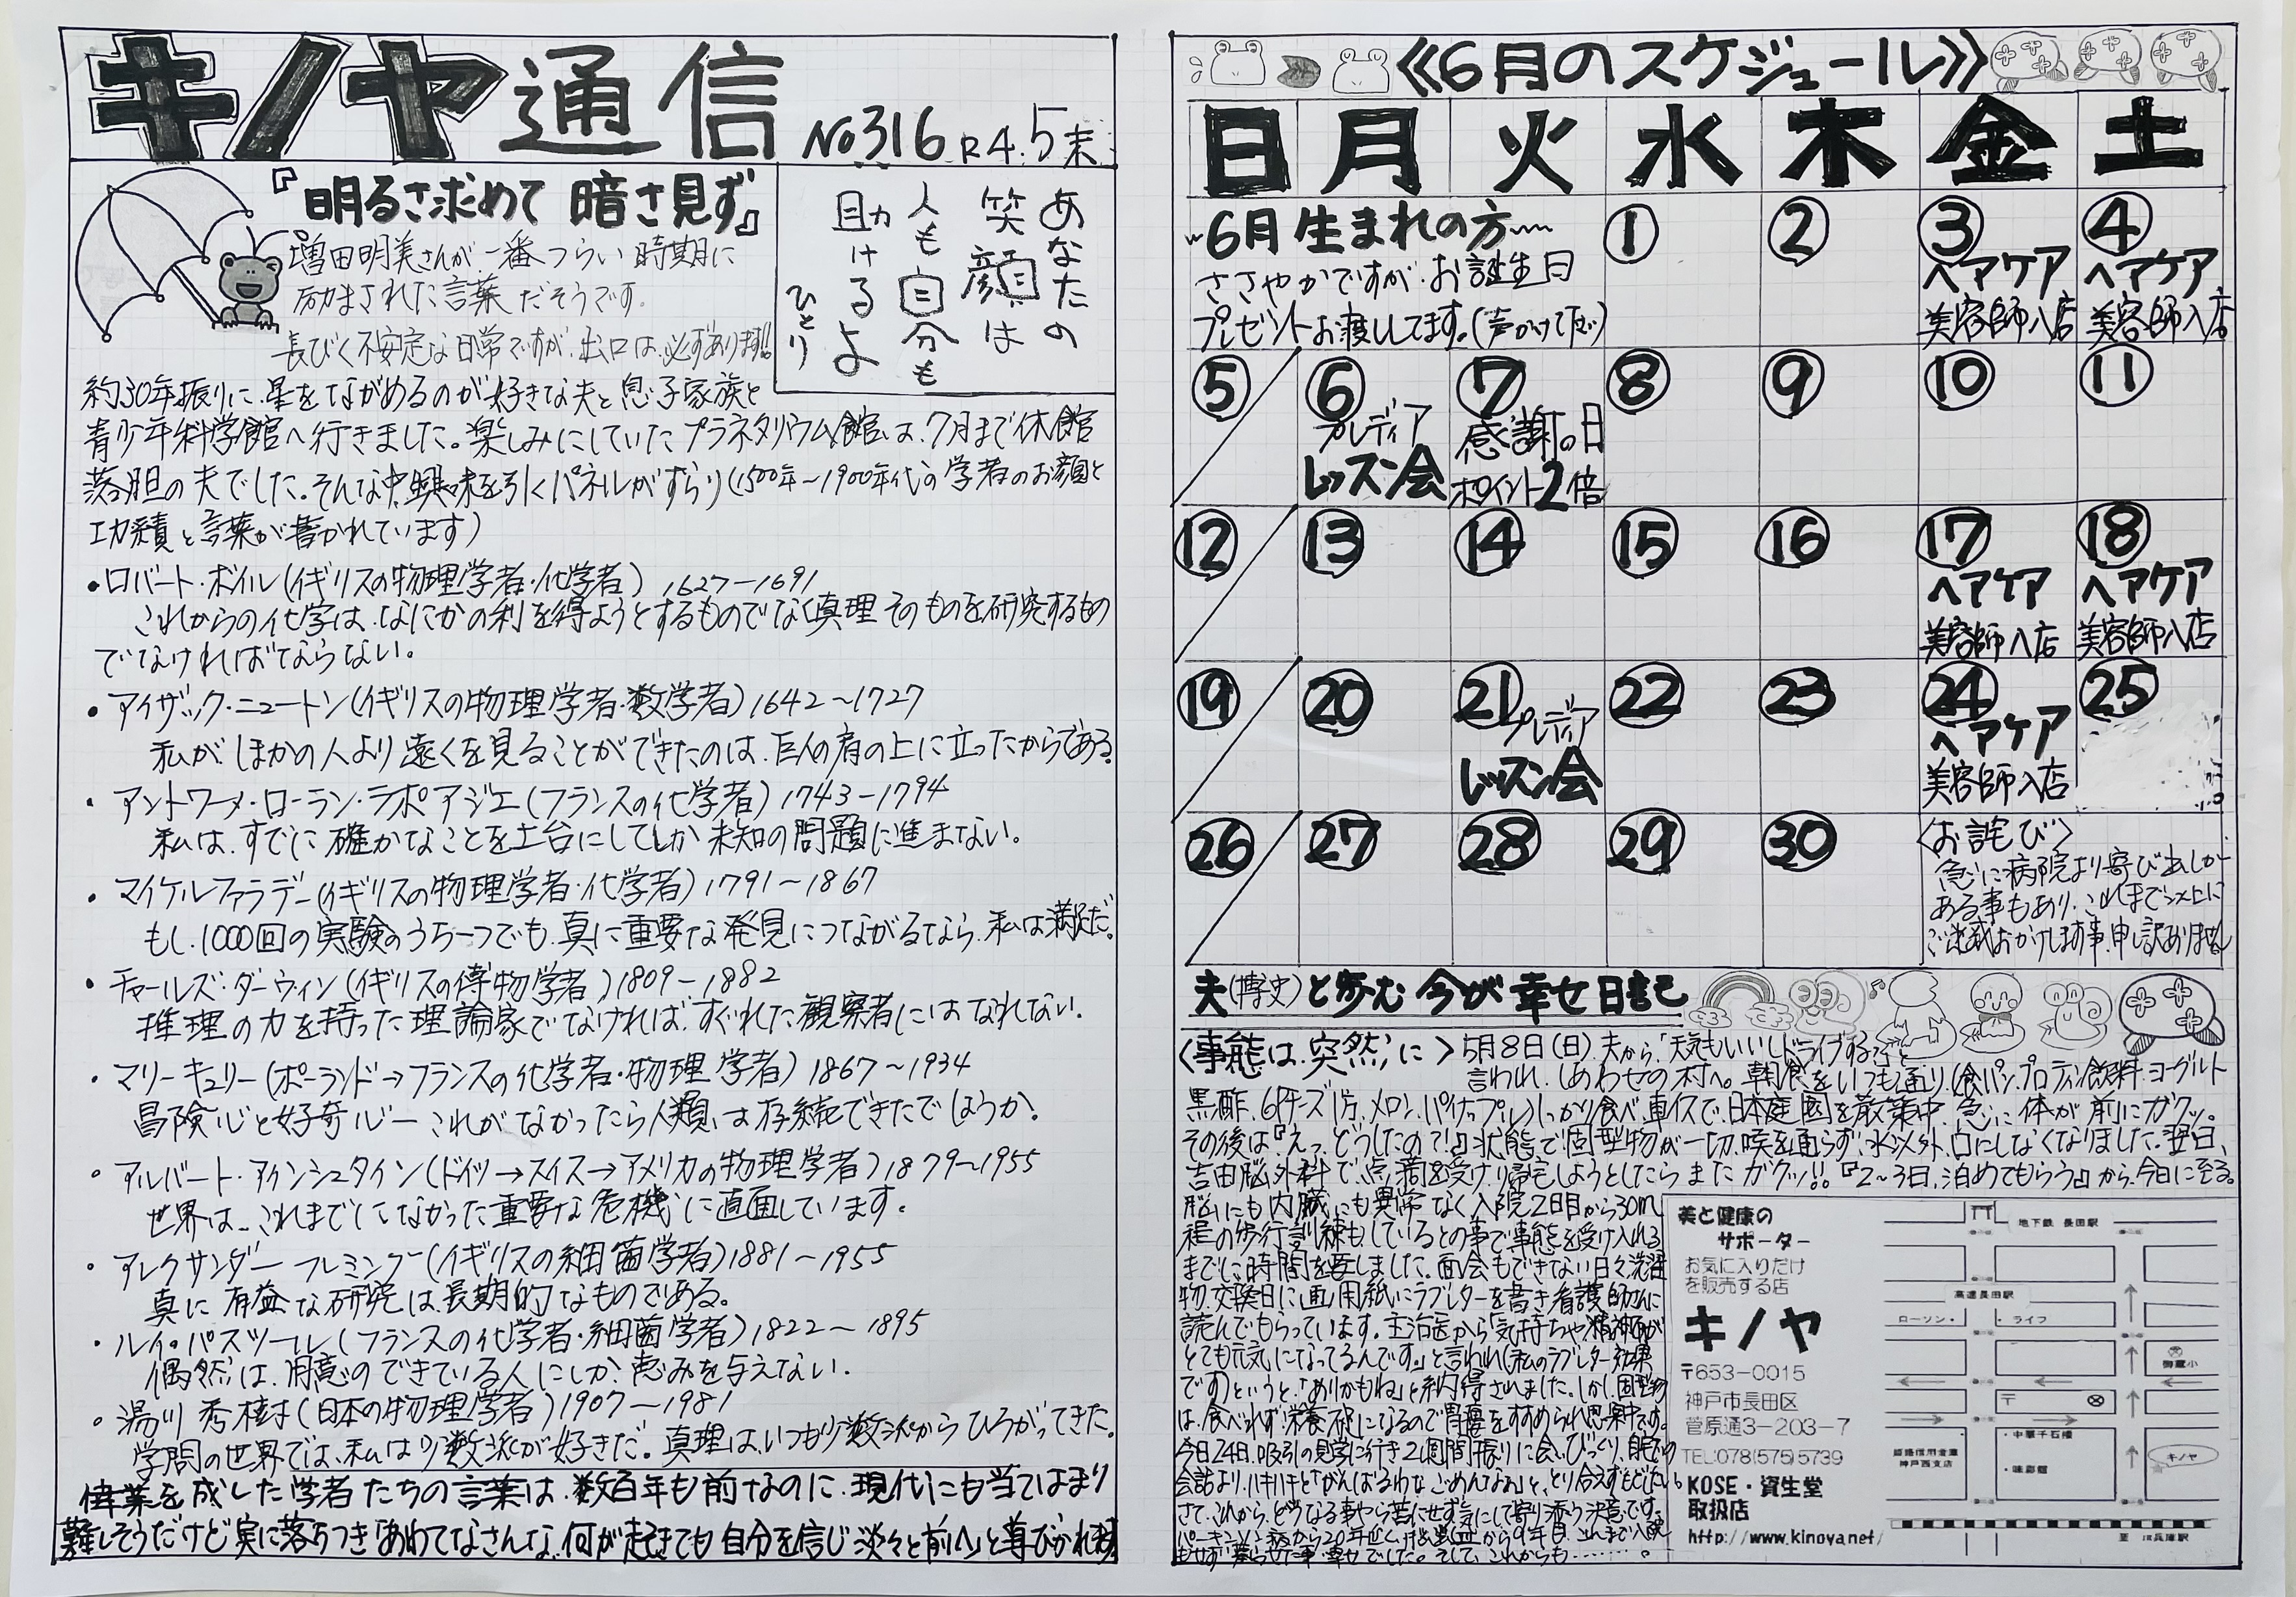 キノヤ通信 No316 R4.5末
『明るさ求めて 暗さ見ず』
増田明美さんが一番つらい時期に
励まされた言葉だそうです。
長びく不安定な日常ですが、出口は必ずあります!!
あなたの
笑顔は
人も自分も
助けるよ
ひとり
約30年振りに、星をながめるのが好きな夫と息子家族と
青少年科学館へ行きました。楽しみにしていたプラネタリウム館は、7月まで休館
落胆の夫でした。そんな中、興味を引くパネルがずらり(1500年～1900年代の学者のお顔と
功績と言葉が書かれています)
・ロバート・ボイル(イギリスの物理学者・化学者) 1627－1691
これからの化学は、なにかの利を得ようとするものでなく真理そのものを研究するもの
でなければならない。
・アイザック・ニュートン(イギリスの物理学者・数学者)1642～1727
私がほかの人より遠くを見ることができたのは、巨人の肩の上に立ったからである。
・アントワーヌ・ローラン・ラボアジエ(フランスの化学者)1743－1794
私は、すでに確かなことを土台にしてしか未知の問題に進まない。
・マイケルファラデー(イギリスの物理学者・化学者)1791～1867
もし、1000回の実験のうち一つでも、真に重要な発見につながるなら、私は満足だ。
・チャールズ・ダーウィン(イギリスの博物学者)1809－1882
推理の力を持った理論家でなければ、すぐれた観察者にはなれない。
・マリーキュリー(ポーランド→フランスの化学者・物理学者)1867～1934
冒険心と好奇心－これがなかったら人類は存続できたでしょうか。
・アルバート・アインシュタイン(ドイツ→スイス→アメリカの物理学者)1879～1955
世界は、これまでになかった重要な危機に直面しています。
・アレクサンダーフレミング(イギリスの細菌学者)1881～1955
真に有益な研究は、長期的なものである。
・ルイ・パスツール(フランスの化学者・細菌学者)1822～1895
偶然は、用意のできている人にしか、恵みを与えない。
・湯川秀樹(日本の物理学者)1907～1981
学問の世界では、私は少数派が好きだ。真理は、いつも少数派からひろがってきた。
偉業を成した学者たちの言葉は、数百年も前なのに、現代にも当てはまり
難しそうだけど実に落ちつき「あわてなさんな、何が起きても自分を信じ淡々と前へ」と導びかれ
《6月のスケジュール》
日 月 火 水 木 金 土
6月生まれの方
ささやかですが、お誕生日
プレゼントお渡ししてます。(声かけて下さい)
① ② ③ ④
ヘアケア ヘアケア
美容師入店 美容師入店
⑤ ⑥ ⑦ ⑧ ⑨ ⑩ ⑪
プレディア 感謝の日
レッスン会 ポイント2倍
⑫ ⑬ ⑭ ⑮ ⑯ ⑰ ⑱
ヘアケア ヘアケア
美容師入店 美容師入店
⑲ ⑳ ㉑ ㉒ ㉓ ㉔ ㉕
プレディア ヘアケア
レッスン会 美容師入店
㉖ ㉗ ㉘ ㉙ ㉚
<お詫び>
急に病院より呼び出しが
ある事もあり、これまで以上に
ご迷惑おかけします事、申し訳ありません
夫(博史)と歩む 今が幸せ日記
<事態は、突然に> 5月8日(日)夫から「天気もいいしドライブする?」と
言われ、しあわせの村へ。朝食をいつも通り(食パン、プロテイン飲料、ヨーグルト
黒酢、6Pチーズ1ケ、メロン、パイナップル)しっかり食べ、車イスで、日本庭園を散策中、急に体が前にガクッ。
その後は『えっ、どうしたの?!』状態で固型物が一切喉を通らず、水以外、口にしなくなりました。翌日、
吉田脳外科で点滴を受け、帰宅しようとしたらまたガクッ!!『2～3日、泊めてもらう』から、今日に至る。
脳にも内臓にも異常なく入院2日目から30m
程の歩行訓練もしているとの事で事態を受け入れる
までに時間を要しました。面会もできない日々洗濯
物交換日に画用紙にラブレターを書き看護師さんに
読んでもらっています。主治医から「気持ちや精神面が
とても元気になってるんです。」と言われ(私のラブレター効果
です)というと、「ありかもね」と納得されました。しかし、固型物
は、食べれず栄養不足になるので胃瘻をすすめられ思案中です。
今日24日、吸引の見学に行き2週間振りに会いびっくり、自宅での
会話より、ハキハキと「がんばるわな、ごめんなぁ」と、とり合えずもどたい。
さて、これから、どうなる事やら苦にせず、気にして寄り添う決意です。
パーキンソン病から20年近く、
もせず、暮らせた事、幸せでした。そして、これからも………。
美と健康の
サポーター
お気に入りだけ
を販売する店
キノヤ
〒653-0015
神戸市長田区
菅原通3-203-7
TEL:078(575)5739
KOSE・資生堂
取扱店
http://www.kinoya.net/
地下鉄 長田駅
高速長田駅
ローソン・ ・ライフ
御蔵小
〒
・中華千石楼
姫路信用金庫
神戸西支店
・味彩館
キノヤ
至 JR兵庫駅